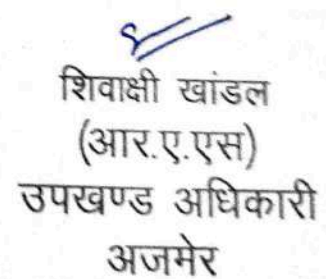 शिवाक्षी खांडल
(आर.ए.एस)
उपखण्ड अधिकारी
अजमेर